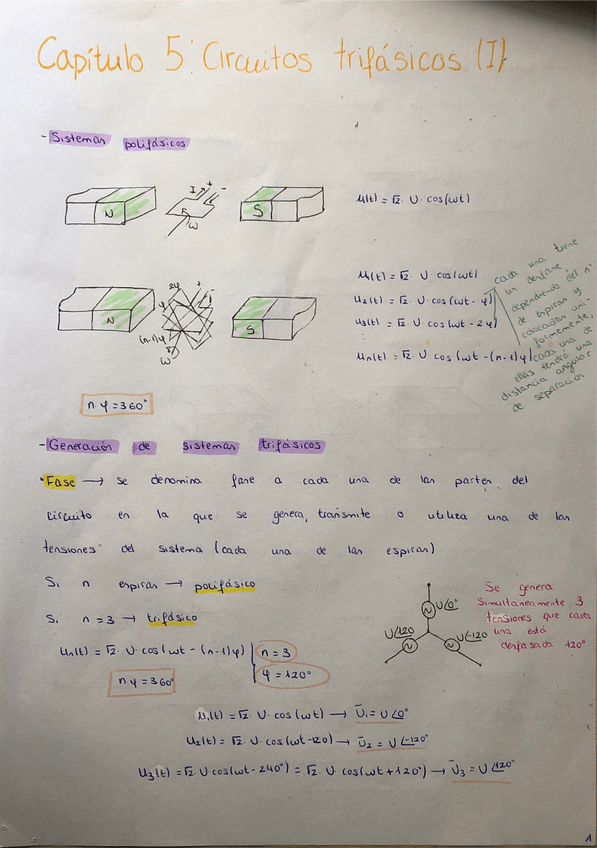 Capítulo 5: Circuitos trifásicos (I)
- Sistemas polifásicos
N
I
+
-
ω
S
u(t) = √2 · U · cos(ωt)
N
2φ
φ
(n-1)φ
ω
S
u₁(t) = √2 · U · cos(ωt)
u₂(t) = √2 · U · cos(ωt - φ)
u₃(t) = √2 · U · cos(ωt - 2φ)
uₙ(t) = √2 · U · cos(ωt - (n-1)φ)
cada una tiene
un desfase
dependiendo del nº
de espiras y
colocación uni-
formemente,
cada una de
ellas tendrá una
distancia angular
de separación
n·φ = 360°
- Generación de sistemas trifásicos
· Fase → se denomina fase a cada una de las partes del
circuito en la que se genera, transmite o utiliza una de las
tensiones del sistema (cada una de las espiras)
Si n espiras → polifásico
Si n = 3 → trifásico
U∠0°
U∠120
U∠-120
Se genera
simultáneamente 3
tensiones que cada
una está
desfasada 120°
uₙ(t) = √2 · U · cos(ωt - (n-1)φ)
n = 3
φ = 120°
n·φ = 360°
u₁(t) = √2 · U · cos(ωt) → U̅₁ = U∠0°
u₂(t) = √2 · U · cos(ωt-120) → U̅₂ = U∠-120°
u₃(t) = √2 · U cos(ωt - 240°) = √2 · U cos(ωt + 120°) → U̅₃ = U∠120°
1